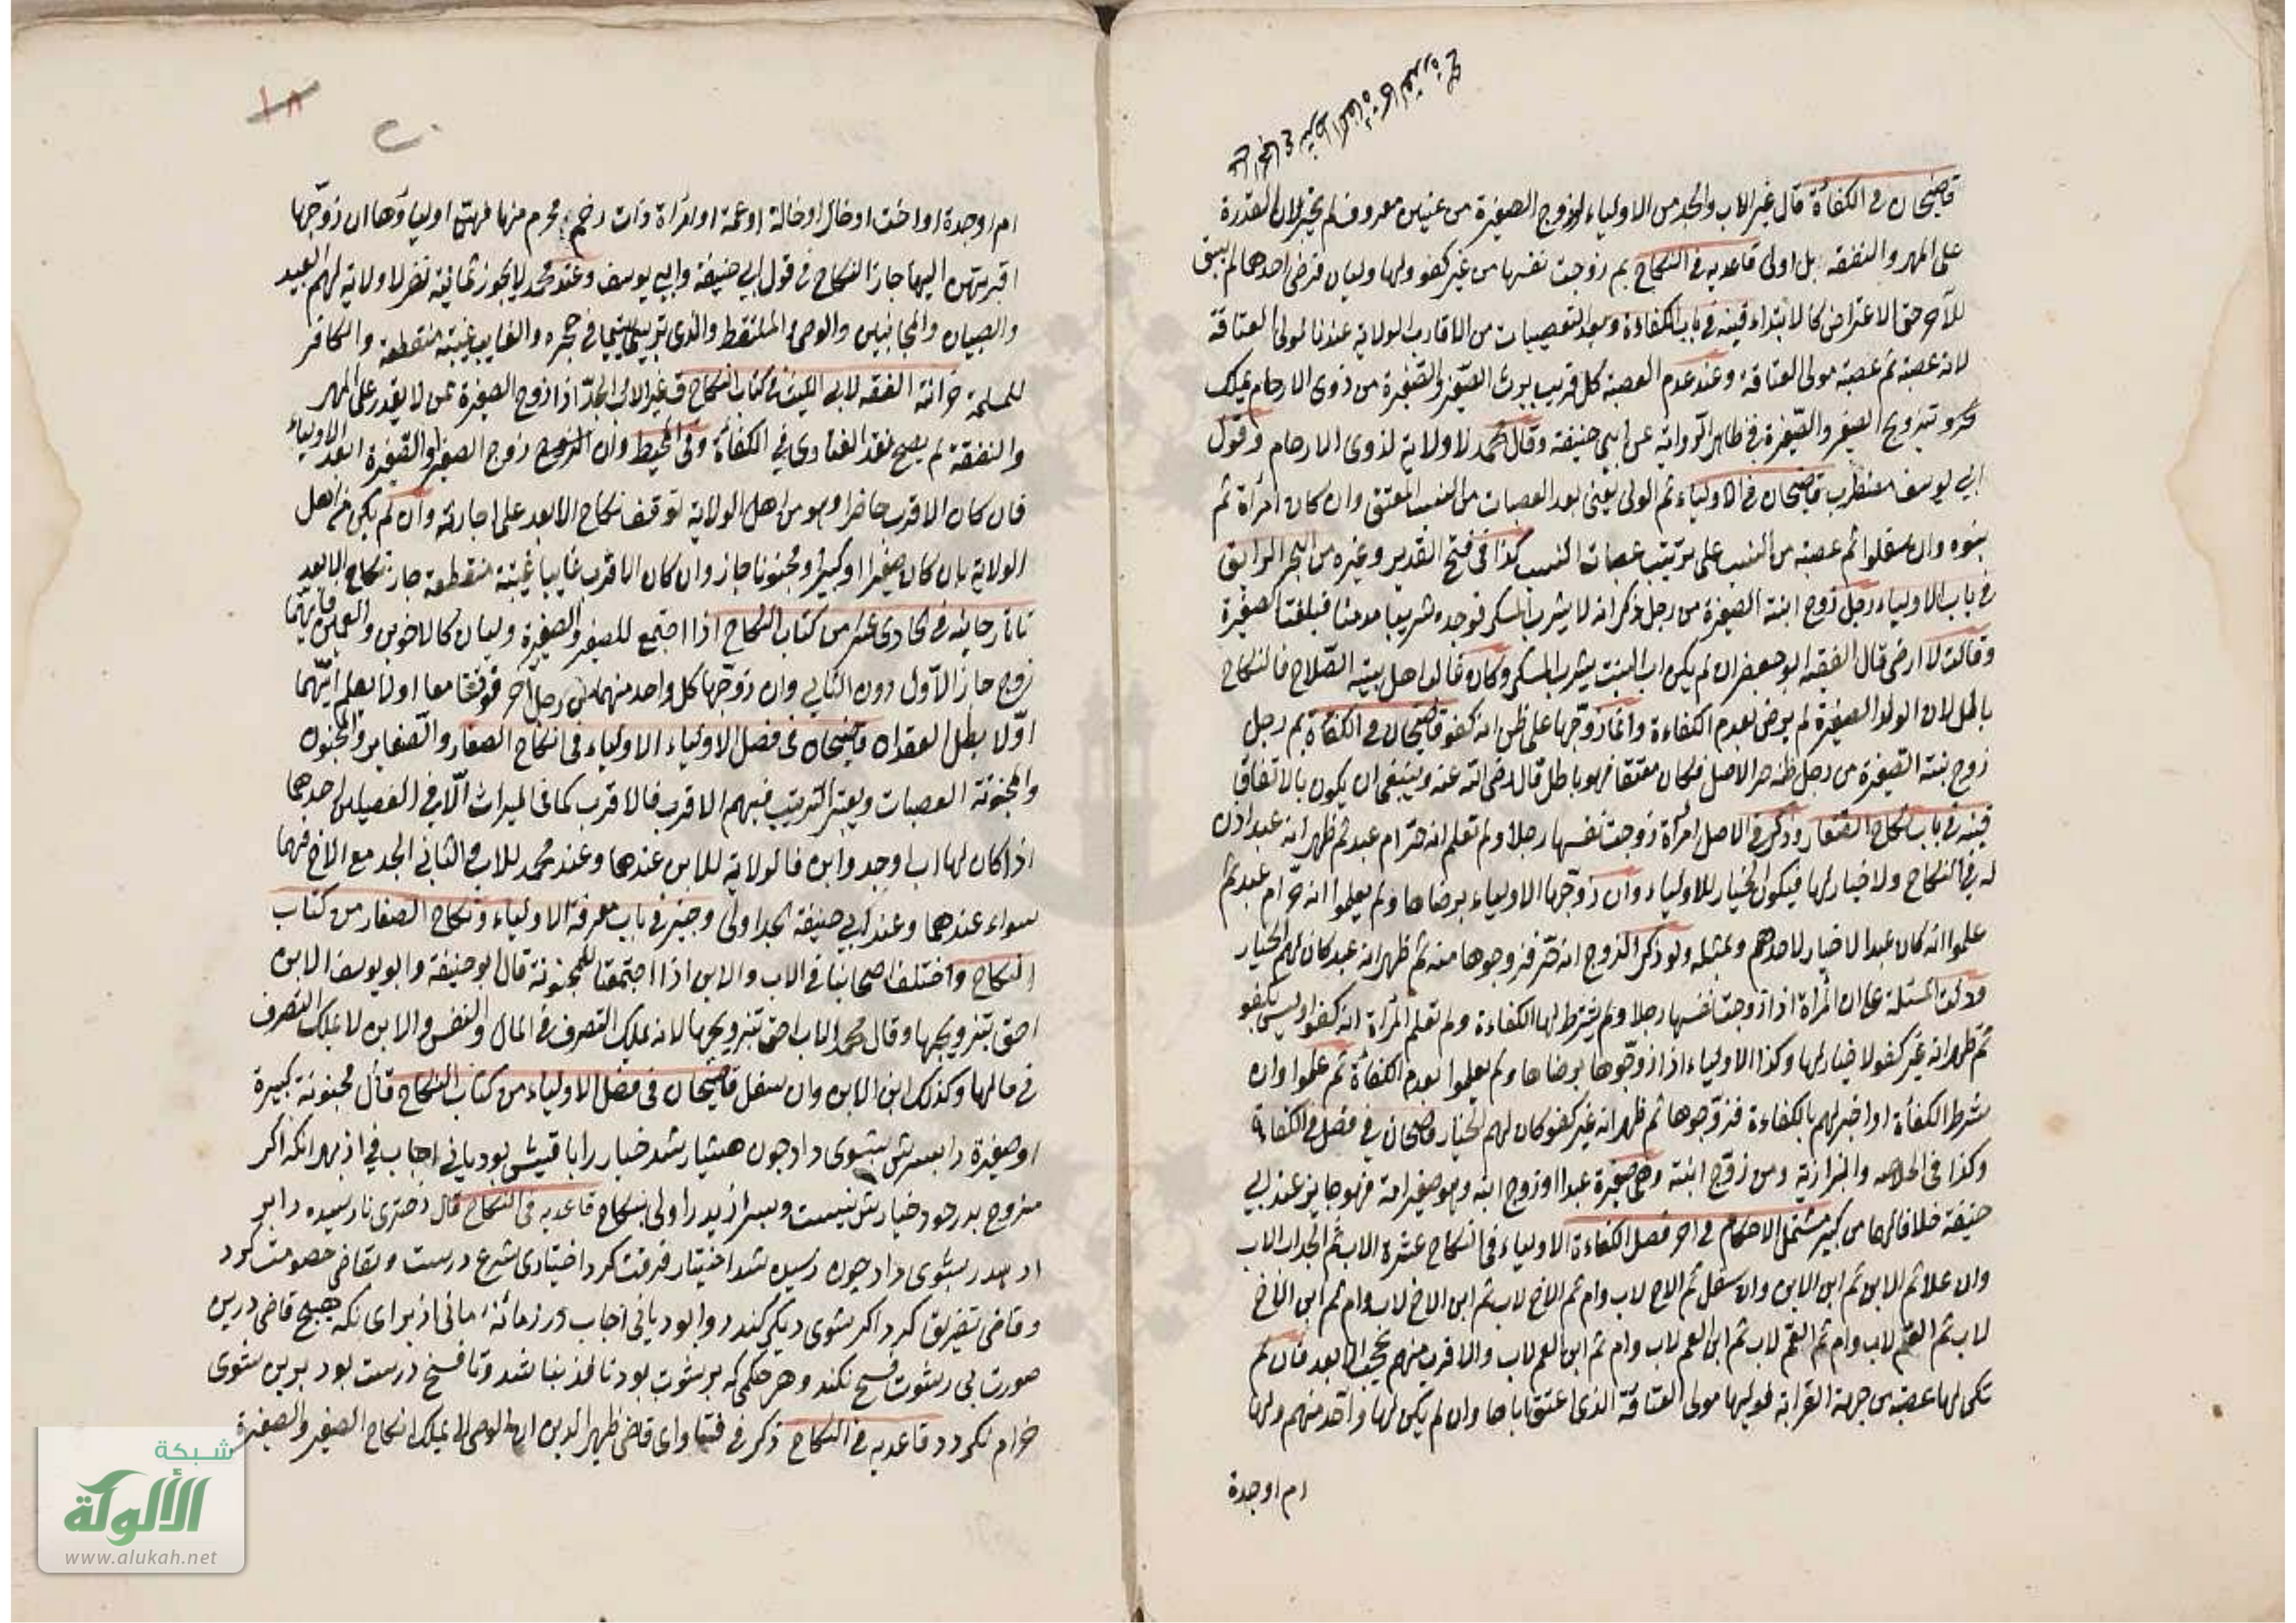 قاضيخان في الكفاءة قال غير الاب والجد من الاولياء لو زوج الصغيرة من عنين معروف لم يجز لان القدرة
على المهر والنفقة بل اولى قاعديه في النكاح بم زوجت نفسها من غير كفو ولها وليان فرضي احدهما لم يبق
للآخر حق الاعتراض كالابتداء قنيه في باب الكفاءة وبعد التعصيبات من الاقارب الولاية عندنا لمولى العتاقة
لانه عصبة ثم عصبة مولى العتاقة وعند عدم العصبة كل قريب يرث الصغير والصغيرة من ذوي الارحام يملك
تزويج الصغير والصغيرة في ظاهر الرواية عن ابي حنيفة وقال محمد لا ولاية لذوي الارحام وقول
ابي يوسف مضطرب قاضيخان في الاولياء ثم الولي يعني بعد العصبات من النسب المعتق وان كان امرأة ثم
بنوه وان سفلوا ثم عصبته من النسب على ترتيب عصبات النسب كذا في فتح القدير وغيره من البحر الرايق
في باب الاولياء رجل زوج ابنته الصغيرة من رجل ذكر انه لا يشرب المسكر فوجده شريبا مدمنا فبلغت الصغيرة
وقالت لا ارضى قال الفقيه ابو جعفر ان لم يكن اب البنت يشرب المسكر وكان غالب اهل بيته الصلاح فالنكاح
باطل لان الولد الصغيرة لم يرض بعدم الكفاءة وانما زوجها على ظن انه كفو قاضيخان في الكفاءة بم رجل
زوج بنته الصغيرة من رجل ظنه حر الاصل فكان معتقا فهو باطل قال رضي الله عنه وينبغي ان يكون بالاتفاق
قنيه في باب نكاح الصغار وذكر في الاصل امرأة زوجت نفسها رجلا ولم تعلم انه حر ام عبد ثم ظهر انه عبد اذن
له في النكاح ولا خيار لها فيكون الخيار للاولياء وان زوجها الاولياء برضاها ولم يعلموا انه حر ام عبد ثم
علموا انه كان عبدا لا خيار لاحدهم وبمثله ولو ذكر الزوج انه حر فزوجوها منه ثم ظهر انه عبد كان لهم الخيار
ودلت المسئلة على ان المرأة اذا زوجت نفسها رجلا ولم يشترط لها الكفاءة ولم تعلم المرأة انه كفو او ليس بكفو
ثم ظهر انه غير كفو لا خيار لها وكذا الاولياء اذا زوجوها برضاها ولم يعلموا بعدم الكفاءة ثم علموا وان
شرط الكفاءة او اخبر لهم بالكفاءة فزوجوها ثم ظهر انه غير كفو كان لهم الخيار قاضيخان في فصل في الكفاءة
وكذا في الخلاصه والبزازية ومن زوج ابنته وهي صغيرة عبدا او زوج ابنه وهو صغير امة فهو جايز عند ابي
حنيفة خلافا لهما من كبير مشتمل الاحكام في اخر فصل الكفاءة الاولياء في النكاح عشرة الاب ثم الجد اب الاب
وان علا ثم الابن ثم ابن الابن وان سفل ثم الاخ لاب وام ثم الاخ لاب ثم ابن الاخ لاب وام ثم ابن الاخ
لاب ثم العم لاب وام ثم العم لاب ثم ابن العم لاب وام ثم ابن العم لاب والاقرب منهم يحجب الابعد فان لم
تكن لها عصبة من جهة القرابة فوليها مولى العتاقة الذي اعتق اباها وان لم يكن لها واحد منهم ولها
ام او جدة
١٨
ام او جدة او اخت او خال او خالة او عمة او امرأة ذات رحم محرم منها فهن اولياؤها ان زوجها
اقربهن اليها جاز النكاح في قول ابي حنيفة وابي يوسف وعند محمد لا يجوز ثمانية نفر لا ولاية لهم العبيد
والصبيان والمجانين والوصي والملتقط والذي يربي اليتيم في حجره والغايب غيبة منقطعة والكافر
للمسلمة خزانة الفقه لابي الليث في كتاب النكاح غير الاب والجد اذا زوج الصغيرة ممن لا يقدر على المهر
والنفقة لم يصح نقد الفتاوى في الكفاءة وفي المحيط وان زوج الصغير والصغيرة ابعد الاولياء
فان كان الاقرب حاضرا وهو من اهل الولاية توقف نكاح الابعد على اجازته وان لم يكن من اهل
الولاية بان كان صغيرا او كبيرا مجنونا جاز وان كان الاقرب غايبا غيبة منقطعة جاز نكاح الابعد
تاتارخانيه في الحادى عشر من كتاب النكاح اذا اجتمع للصغير والصغيرة وليان كالاخوين والعمين فايهما
زوج جاز الاول دون الثاني وان زوجها كل واحد منهما من رجل آخر فوقعا معا او لا يعلم ايهما
اولا بطل العقدان قاضيخان في فصل الاولياء الاولياء في انكاح الصغار والصغاير والمجنون
والمجنونة العصبات ويعتبر الترتيب فيهم الاقرب فالاقرب كما في الميراث الا في الفصيلين احدهما
اذا كان لها اب او جد وابن فالولاية للابن عندهما وعند محمد للاب والثاني الجد مع الاخ فهما
سواء عندهما وعند ابي حنيفة الجد اولى وجيز في باب معرفة الاولياء ونكاح الصغار من كتاب
النكاح واختلف اصحابنا في الاب والابن اذا اجتمعا للمجنونة قال ابو حنيفة وابو يوسف الابن
احق بتزويجها وقال محمد الاب احق بتزويجها لانه يملك التصرف في المال والنفس والابن لا يملك التصرف
في مالها وكذلك ابن الابن وان سفل قاضيخان في فصل الاولياء من كتاب النكاح قال مجنونة كبيرة
او صغيرة را پسرش بشوى داد چون هشيار شد خيار را باقيش بود يانى اجاب في از بهر انكه اكر
مزوج پدر بود خيارش نيست وپسر از پدر اولى بنكاح قاعديه في النكاح قال دخترى نارسيده را
پدر بشوى داد چون رسيده شد اختيار فرقت كرد اختيارى شرع درست وبقاضى خصومت كرد
وقاضى تفريق كرد اكر بشوى ديكر كند روا بود يانى اجاب در زمانه ما نى از براى انكه هيچ قاضى درين
صورت بى رشوت فسخ نكند وهر حكمى كه برشوت بود نافذ نباشد وتا فسخ درست بود برين شوى
حرام نكردد قاعديه في النكاح ذكر في فتاواى قاضى ظهير الدين ان الوصى لا يملك انكاح الصغير والصغيرة
شبكة
الألوكة
www.alukah.net